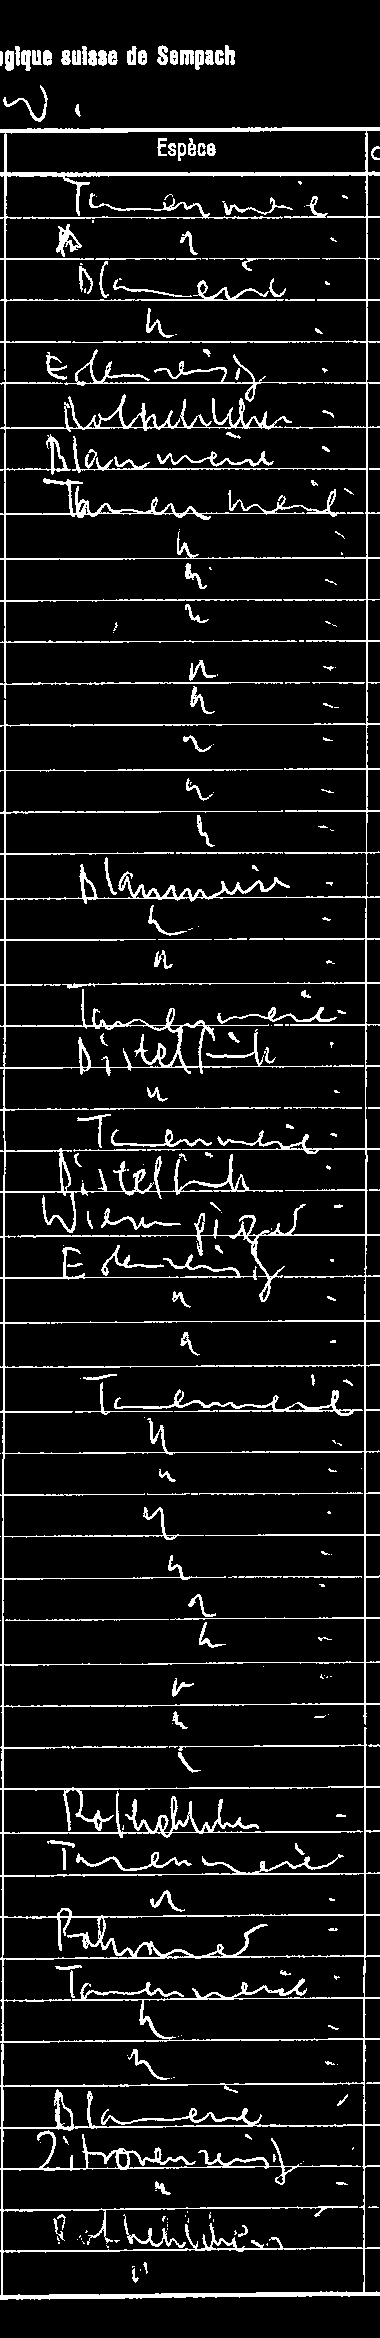 ogique suisse de Sempach
Espèce
Tannenmeise
"
Blaumeise
"
Erlenzeisig
Rotkehlchen
Blaumeise
Tannenmeise
"
"
"
"
"
"
"
"
Blaumeise
"
"
Tannenmeise
Distelfink
"
Tannenmeise
Distelfink
Wiesenpieper
Erlenzeisig
"
"
Tannenmeise
"
"
"
"
"
"
"
"
"
Rotkehlchen
Tannenmeise
"
Tannenmeise
"
"
Blaumeise
Zitronenzeisig
"
Rotkehlchen
"